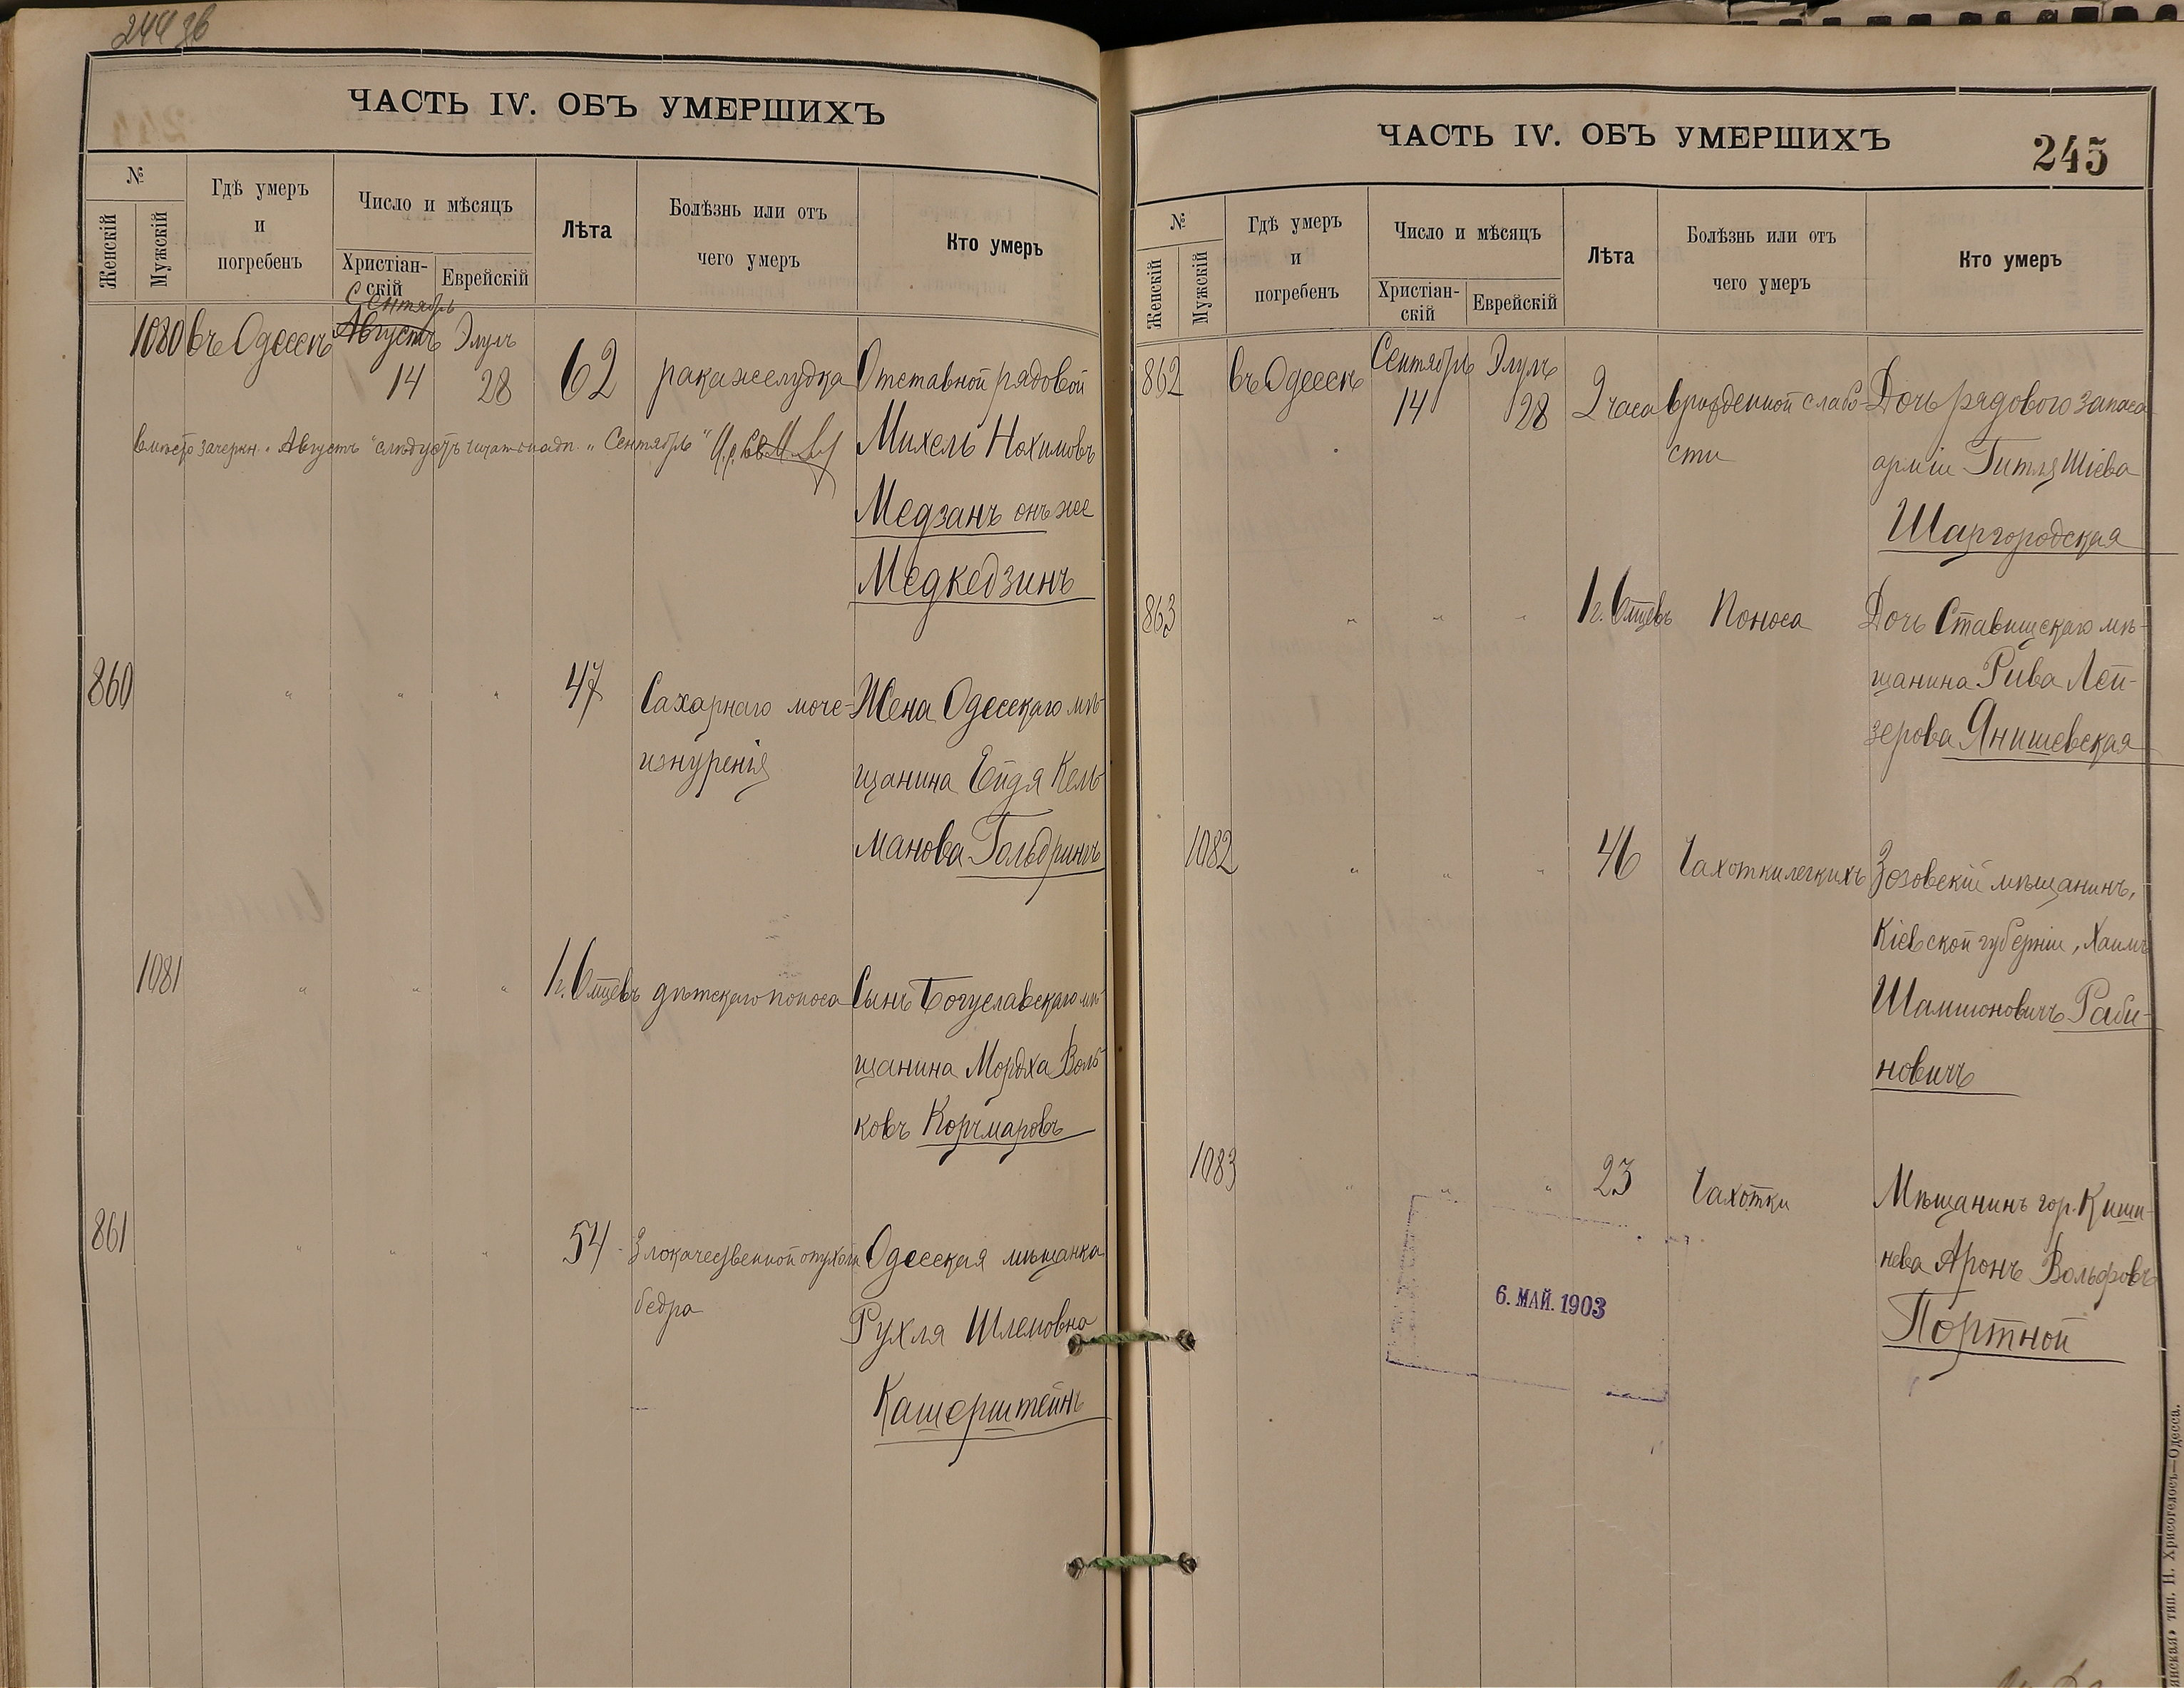 244 об
ЧАСТЬ IV. ОБЪ УМЕРШИХЪ
№
Женскій
Мужскій
Гдѣ умеръ
и
погребенъ
Число и мѣсяцъ
Христіан-
скій
Еврейскій
Лѣта
Болѣзнь или отъ
чего умеръ
Кто умеръ
Сентябрь
1080 въ Одессѣ Августъ Элулъ
14 28 62 рака желудка Отставной рядовой
вмѣсто зачеркн. „Августъ" слѣдуетъ читать надп. „Сентябрь"
Михель Нахимовъ
Медзанъ онъ же
Медкедзинъ
860 " " " 47 Сахарнаго моче- Жена Одесскаго мѣ-
изнуренія щанина Ейдя Кель-
манова Гольдрингъ
1081 " " " 1 г. 6 мцевъ дѣтскаго поноса Сынъ Богуславскаго мѣ-
щанина Мордха Воль-
ковъ Корчмаровъ
861 " " " 54 Злокачественной опухоли Одесская мѣщанка
бедра Рухля Шлемовна
Кашерштейнъ
ЧАСТЬ IV. ОБЪ УМЕРШИХЪ
245
№
Женскій
Мужскій
Гдѣ умеръ
и
погребенъ
Число и мѣсяцъ
Христіан-
скій
Еврейскій
Лѣта
Болѣзнь или отъ
чего умеръ
Кто умеръ
862 въ Одессѣ Сентябрь Элулъ
14 28 2 часа врожденной слабо- Дочь рядового запаса
сти арміи Гитля Шіева
Шаргородская
863 " " " 1 г. 6 мцевъ Поноса Дочь Ставищскаго мѣ-
щанина Рива Лей-
зерова Янишевская
1082 " " " 46 Чахотки легкихъ Зозовскій мѣщанинъ,
Кіевской губерніи, Хаимъ
Шамшоновичъ Раби-
новичъ
1083 " " " 23 Чахотки Мѣщанинъ гор. Киши-
нева Аронъ Вольфовъ
Портной
6. МАЙ. 1903
тип. Н. Хрисогелосъ—Одесса.